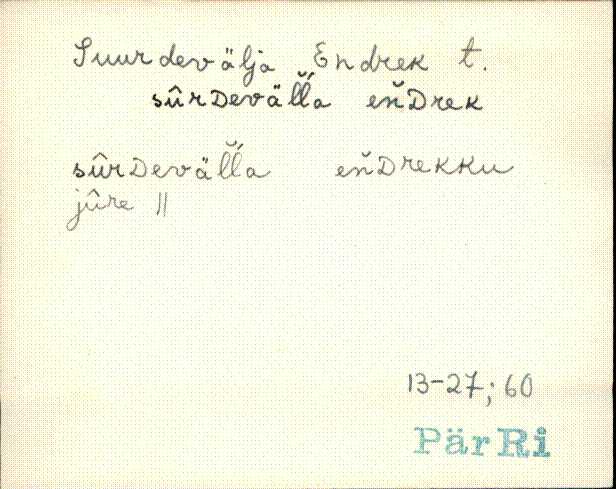 Suurdevälja Endrek t.
sûrDeväl̆l̆a en̆Drek
sûrDeväl̆l̆a en̆Drekku
jûre ||
13-27; 60
PärRi